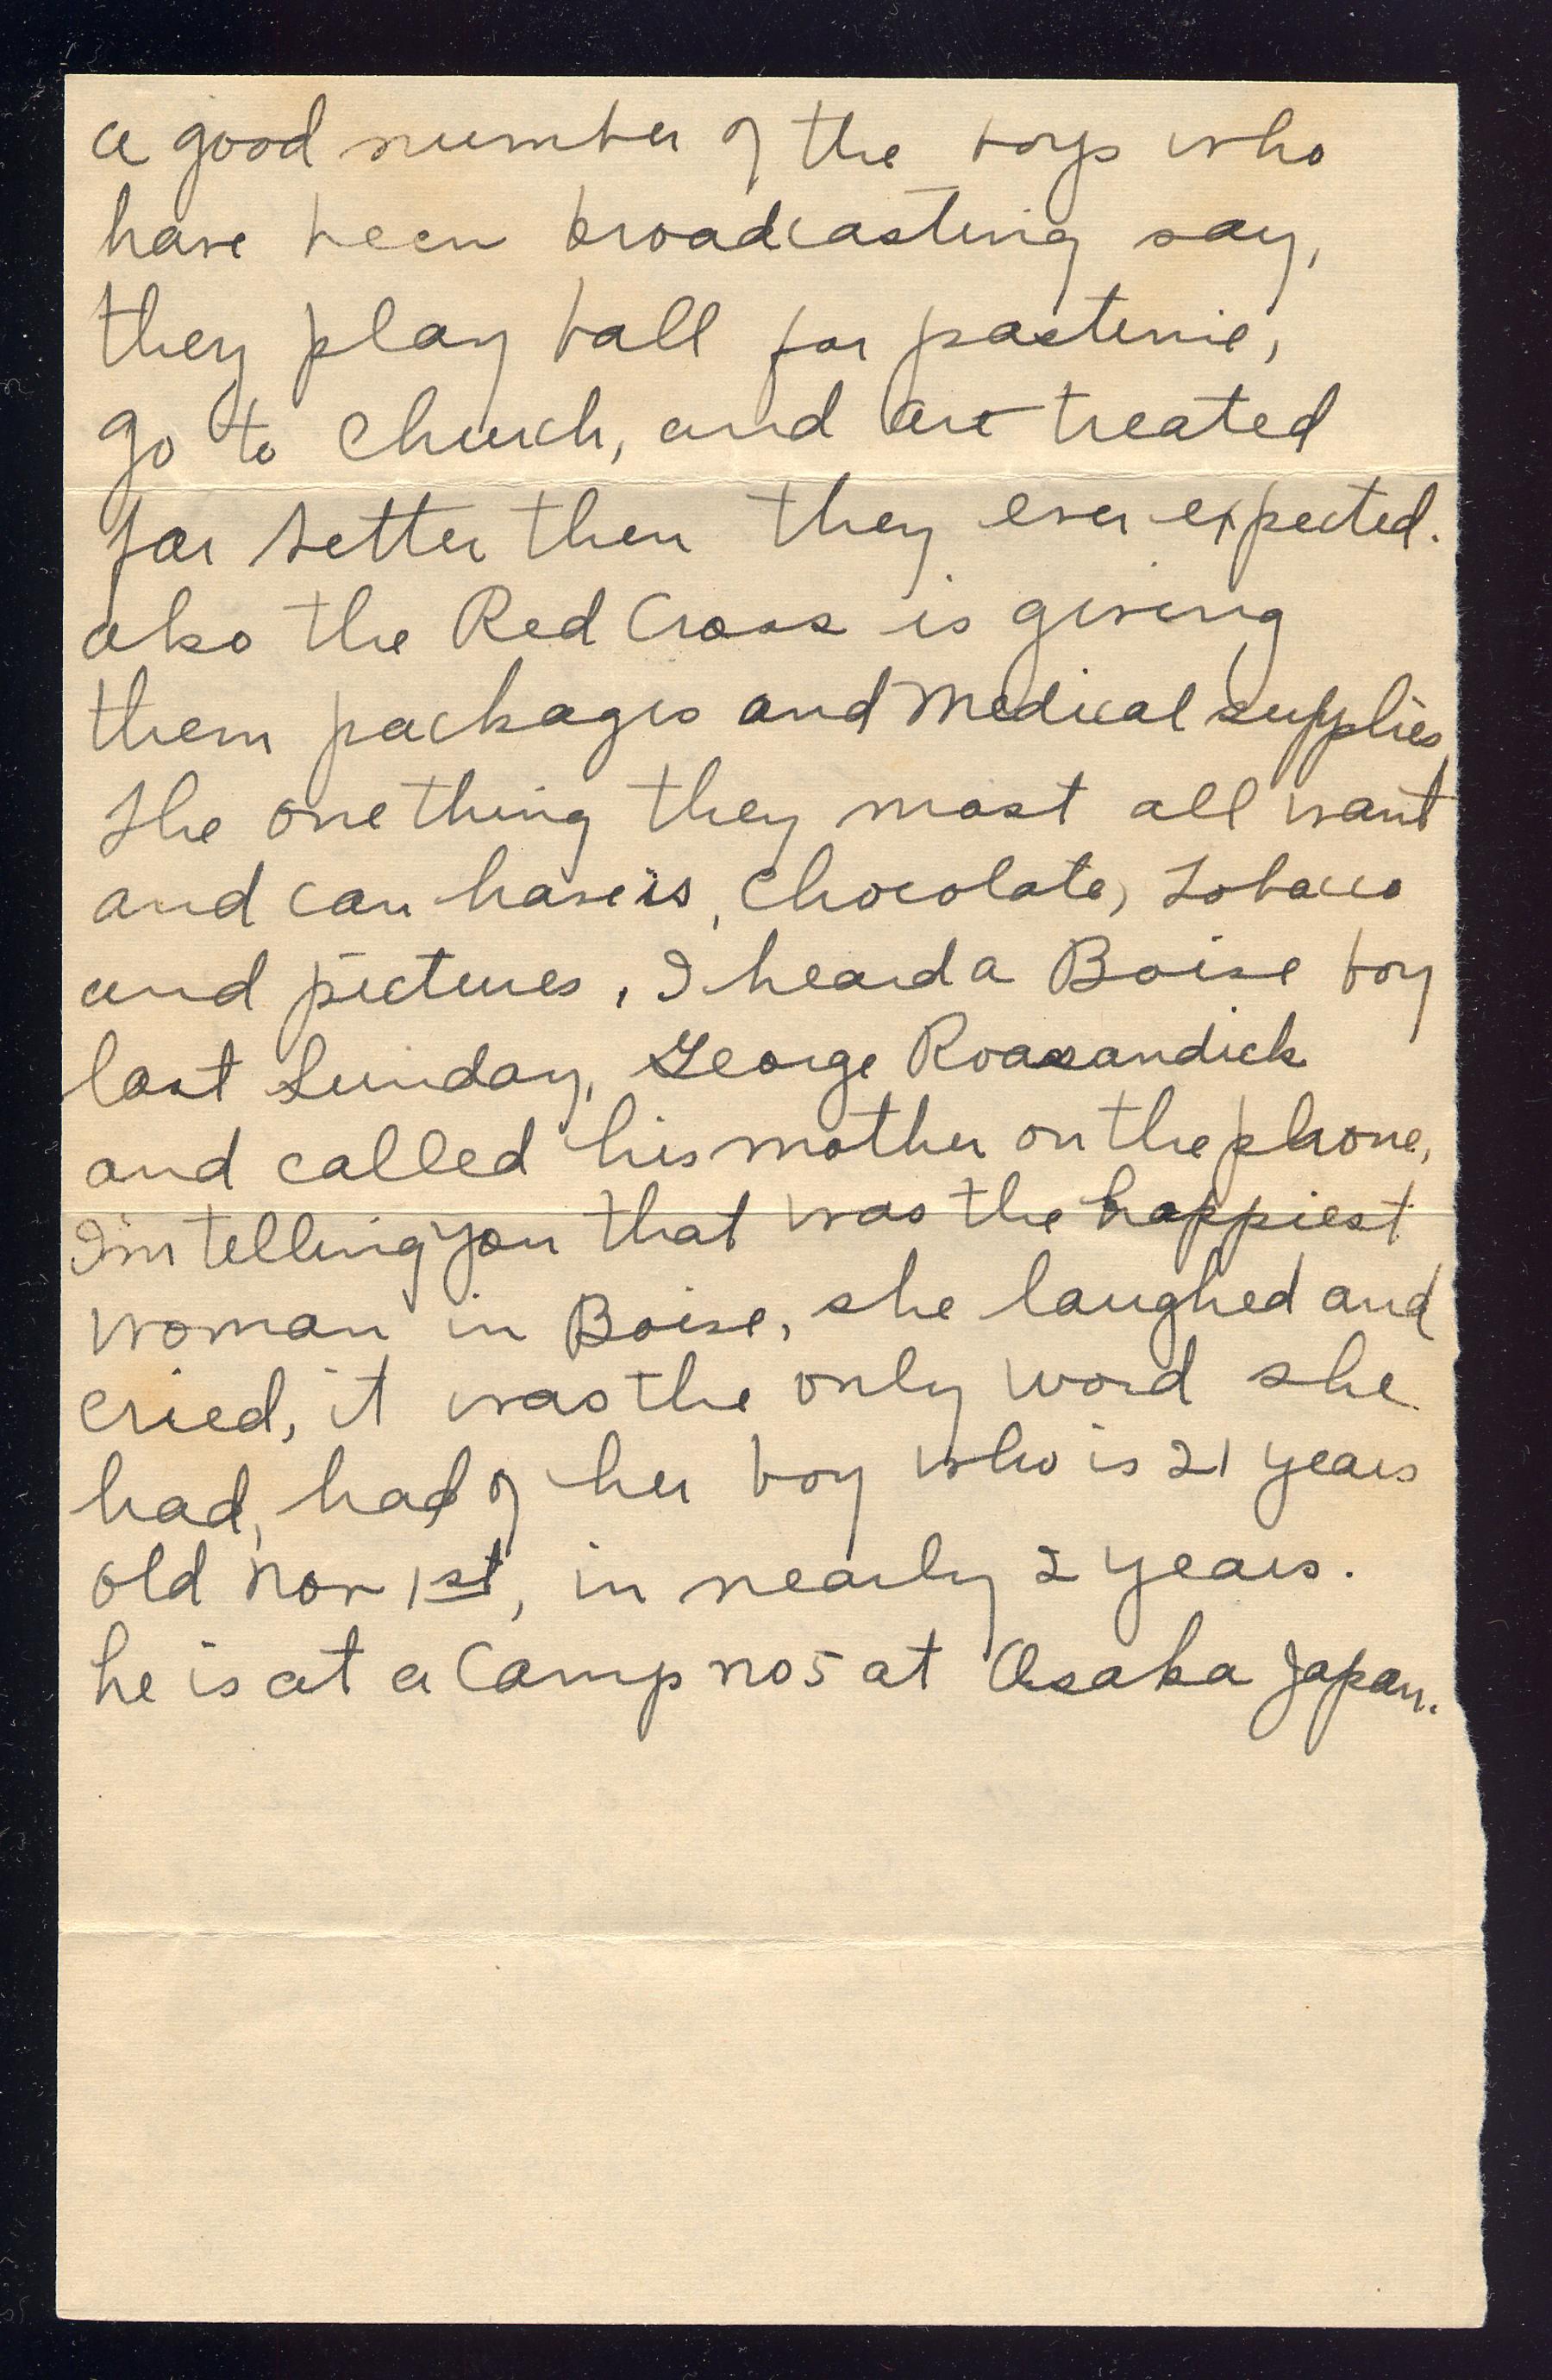 a good number of the boys who
have been broadcasting say,
they play ball for pastime,
go to church, and are treated
far better then they ever expected.
also the Red Cross is giving
them packages and medical supplies
The one thing they most all want
and can have is, chocolate, Tobacco
and pictures, I heard a Boise boy
last Sunday, George Roasandick
and called his mother on the phone,
I'm telling you that was the happiest
woman in Boise, she laughed and
cried, it was the only word she
had, had of her boy who is 21 years
old Nov 1st, in nearly 2 years.
he is at a Camp no 5 at Osaka Japan.